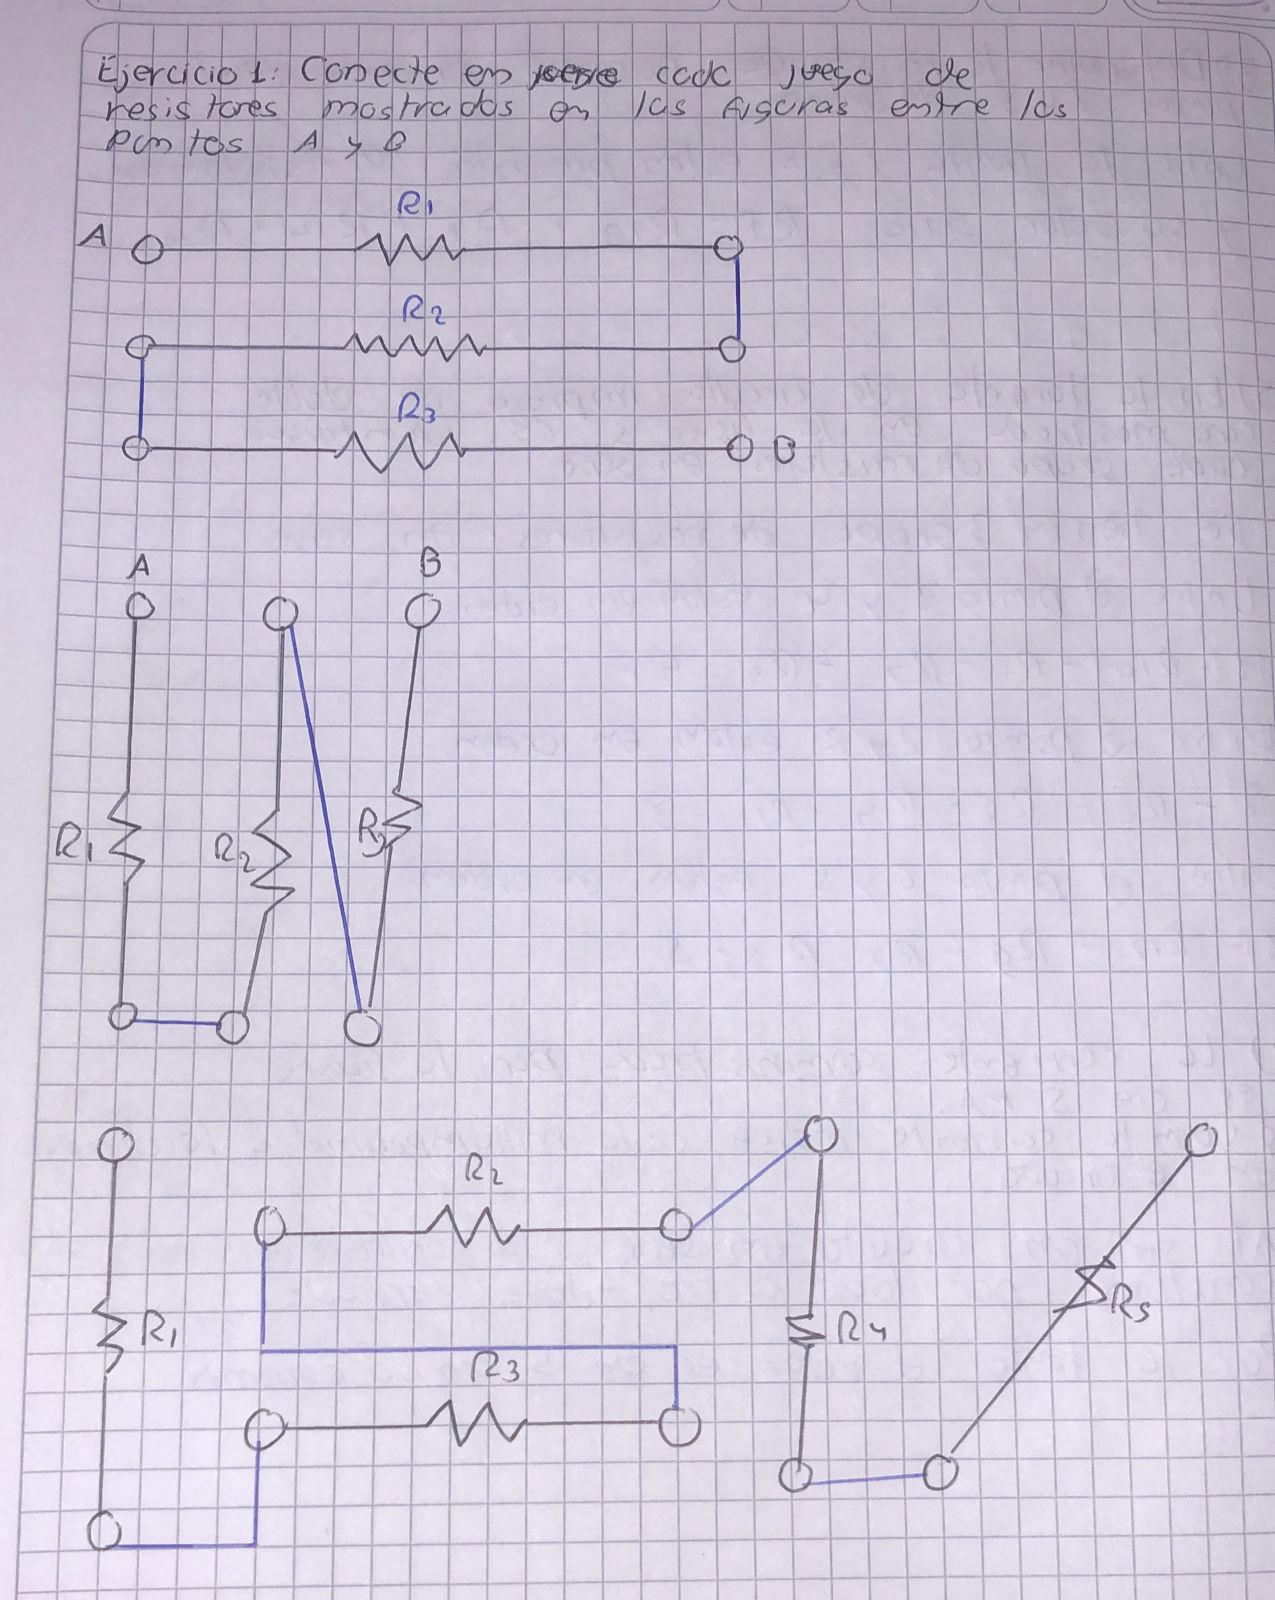 Ejercicio 1: Conecte en serie cada juego de
resistores mostrados en las figuras entre los
puntos A y B
R1
A
R2
R3
B
A
B
R1
R2
R3
R2
R1
R4
R5
R3